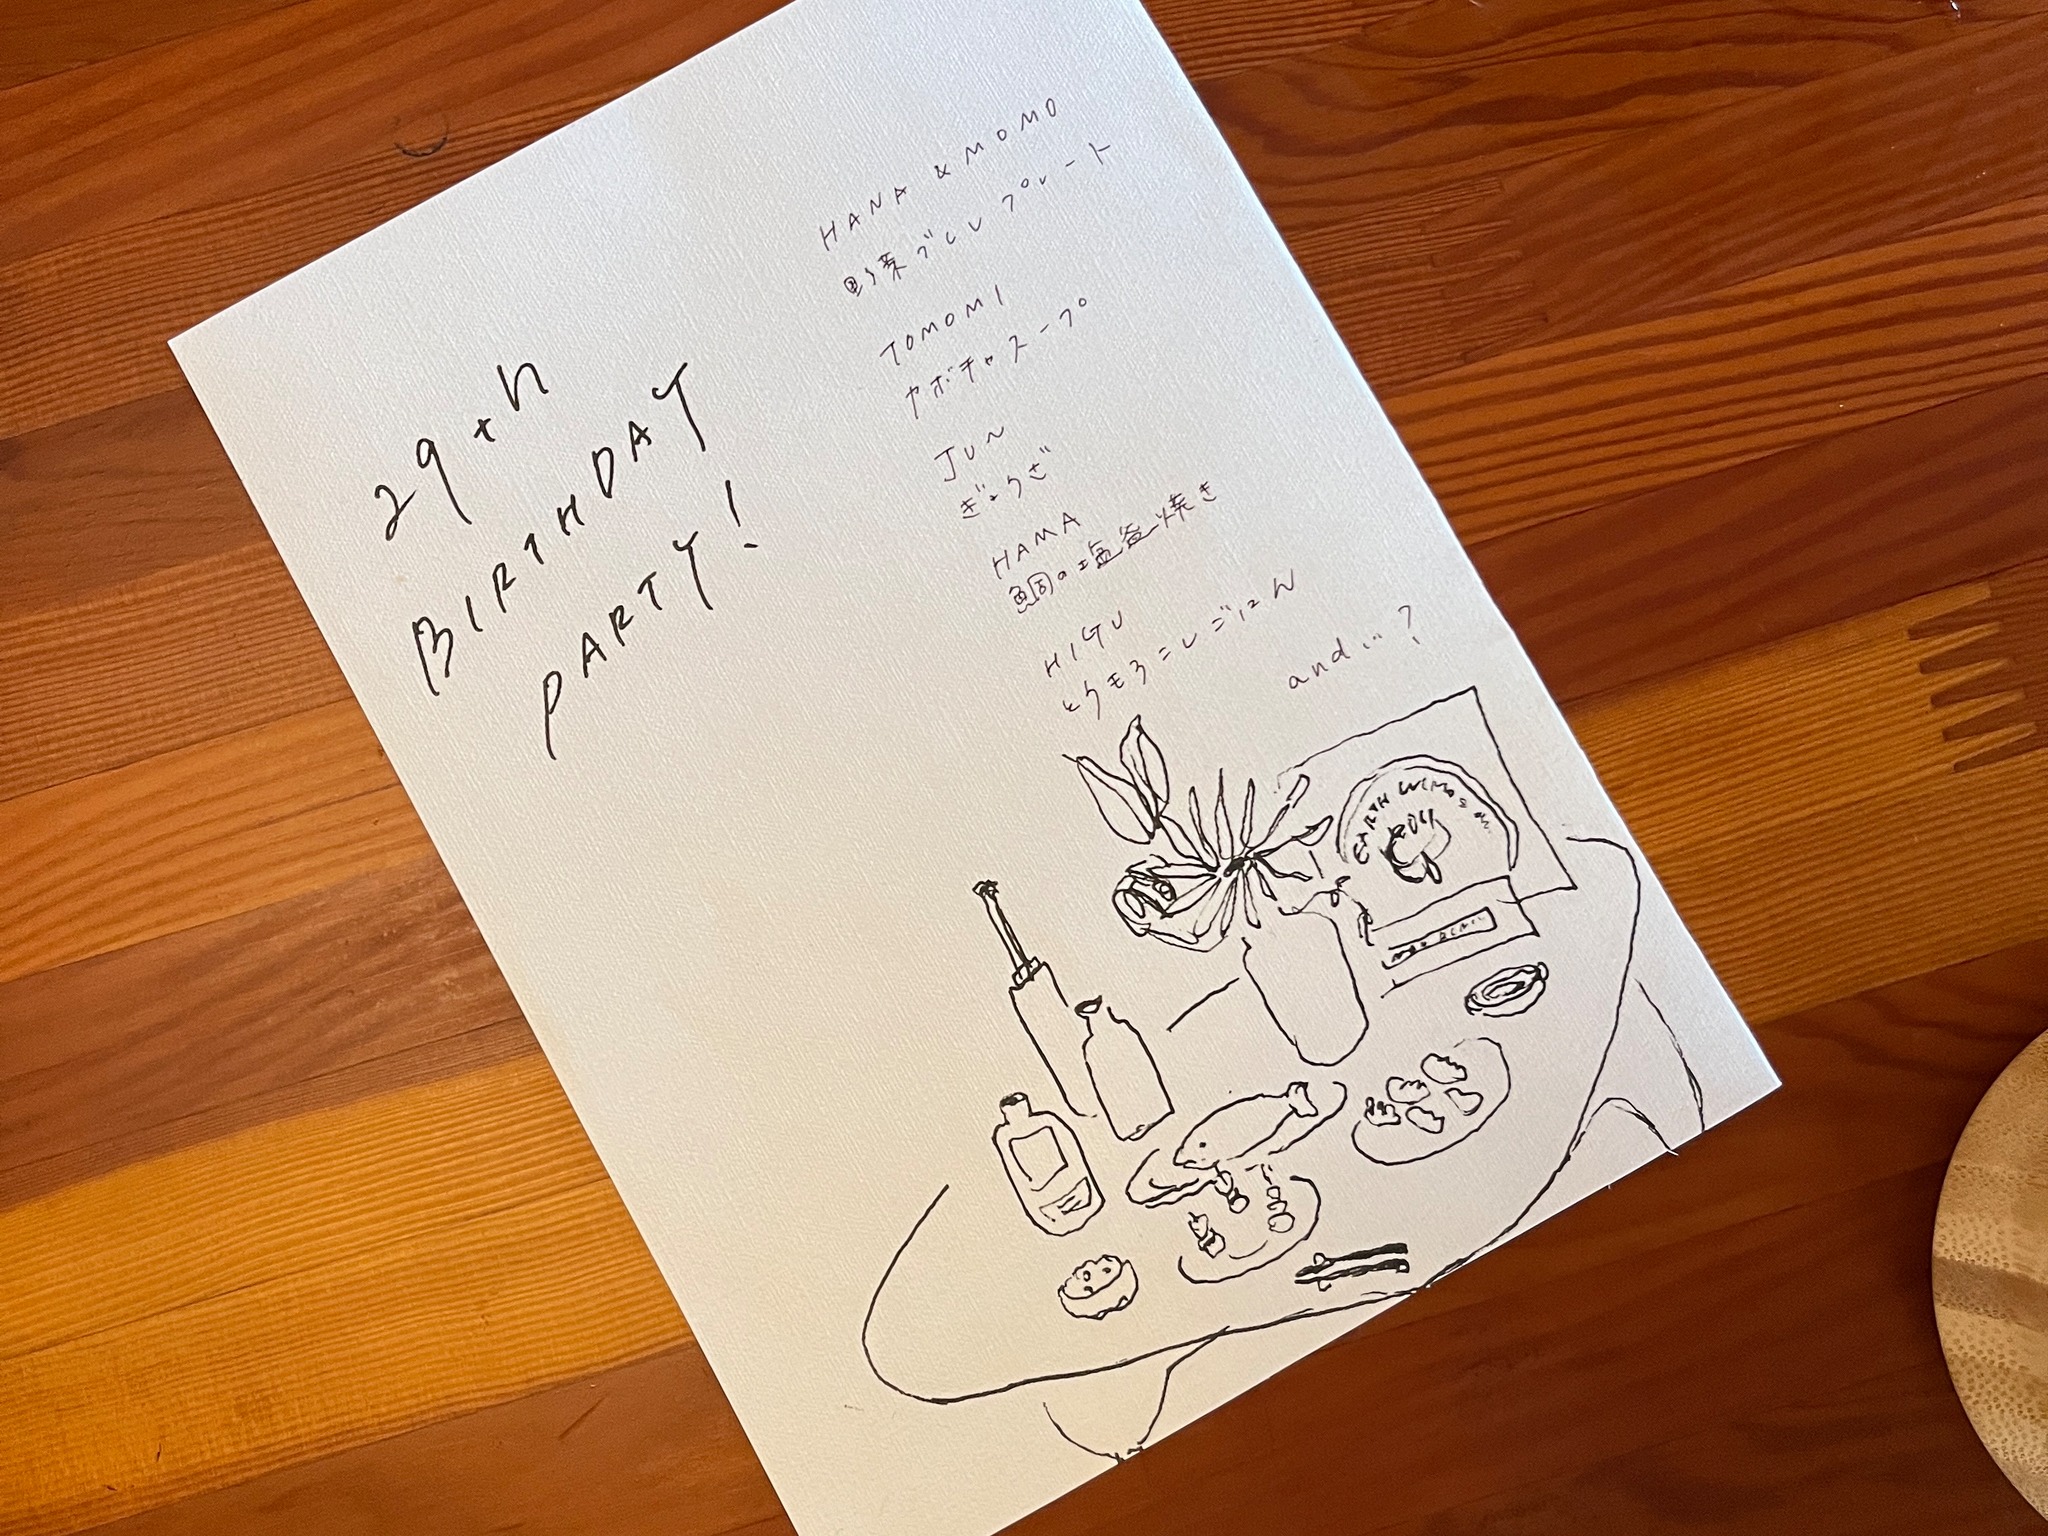 29th
BIRTHDAY
PARTY!
HANA & MOMO
野菜づくしプレート
TOMOMI
カボチャスープ
JUN
ぎょうざ
HAMA
鯛の塩釜焼き
HIGU
とうもろこしごはん
and...?
EARTH WIND &